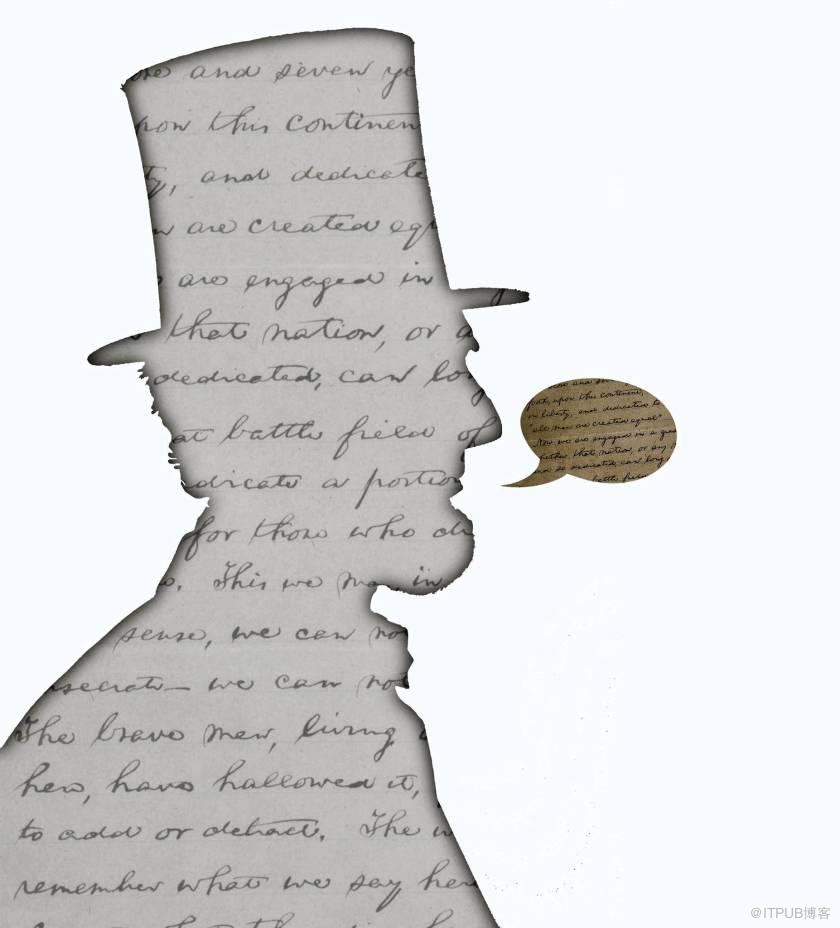 and seven ye
pon this continen
ty, and dedicate
are created equ
are engaged in
that nation, or a
dedicated, can long
at battle field of
dicate a portion
for those who di
This we may in
sense, we can not
nsecrate— we can not
The brave men, living
here, have hallowed it,
to add or detract. The w
remember what we say here
forth, upon this continent,
in liberty, and dedicated to
"all men are created equal"
Now we are engaged in a great
whether that nation, or any
and so dedicated, can long
battle field
@ITPUB博客